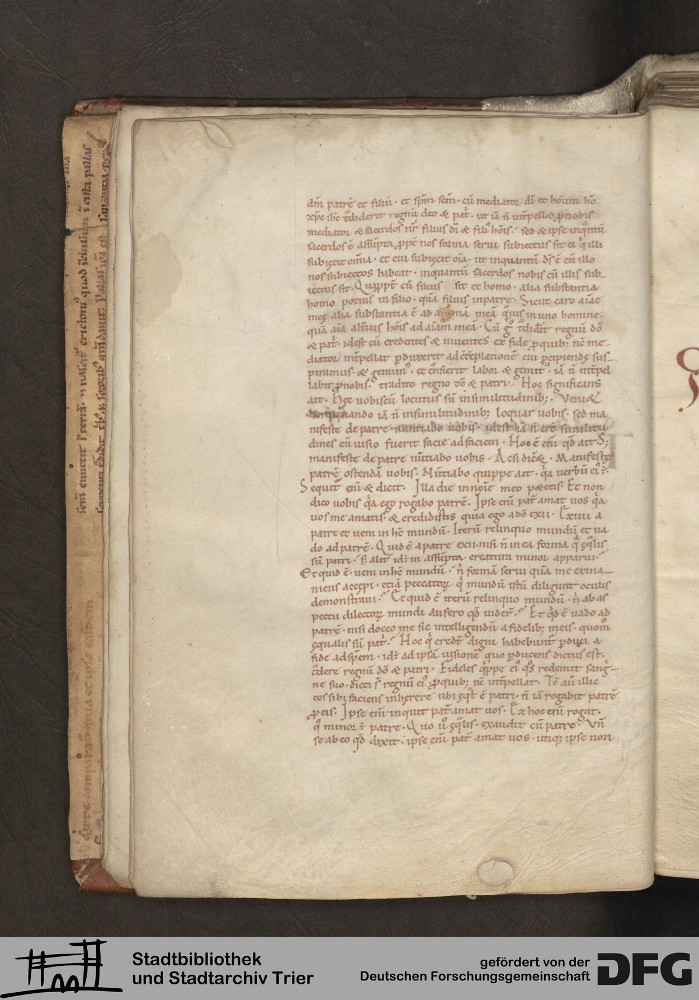 dm patrē et filiū · et spm scm · cū mediator di et hoīnum hō
xpc ihc tradiderit regnū deo & pat · ut iā n intpellet p nobis
mediator & sacerdos nr filius di & fili hoīs · sed & ipse inqntū
sacerdos ē assūpta ppt nos forma serui subiectus sit ei q illi
subiecit omīa · et cui subiecit oīa · ut inquantū ds ē cū illo
nos subiectos habeat · inquantū sacerdos nobis cū illi sub
iectus sit · Quappt cū filius sit et homo · alia substantia
homo potius in filio · qua filius in patre · Sicut caro aiae
meę alia substantia ē ad animā meā quis in uno homine ·
quā aīa altīus hoīs ad aiam meā · Cū g tdidit regnū dō
& pat · id est cū credentes & uiuentes ex fide p quib; nc me
diator intpellat pduxerit ad cteplationē cui pcipiendę sus
piramus & gemim · et tnsierit labor & gemit · iā n intpel
labit p nobis · tradito regno dō & patri · Hoc significans
ait · Hęc uobiscū locutus sū in similitudinib; · Veniet
hora quando iā n in similitudinib; loquar uobis · sed ma
nifeste de patre nuntiabo uobis · id est iā n erit similitu
dines cū uisio fuerit facie ad faciem · Hoc ē eni qd ait
manifeste de patre nūtiabo uobis · Ac si dic & · Manifeste
patrē ostendā uobis · Nūtiabo quippe ait · qa uerbū ei ē ·
Sequit eni & dicit · Illa die in noīe meo petetis · Et non
dico uobis qa ego rogabo patrē · Ipse eni pat amat uos qa
uos me amatis & credidistis quia ego a dō exii · Exiui a
patre et ueni in hc mundū · Iterū relinquo mundū et ua
do ad patrē · Quid ē a patre exii · nisi n in ea forma q eqlis
sū patri · s alit id in assūpta creatura minor apparui ·
Et quid ē · ueni in hc mundū · n formā serui quā me exina
niens accepi · etiā peccatorz q mundū istū diligunt oculis
demonstraui · Et quid ē iterū relinquo mundū · n ab as
pectu dilectorz mundi aufero qd uidert · Et qd ē uado ad
patrē · nisi doceo me sic intelligendū a fidelib; meis · quom
equalis sū pat · Hoc q credt digni habebunt pduci a
fide ad spem · id ad ipsā uisionē quo pducens dictus est
tdere regnū dō & patri · Fideles qppe ei qs redemit sang
ne suo · dicti s regnū ei p quib; nc intpellat · Tc au illic
eos sibi faciens inherere ubi eqt ē patri · n iā rogabit patrē
p eis · Ipse eni inquit pat amat uos · Ex hoc eni rogat ·
qo minor ē patre · Quo u eqlis · exaudit cū patre · Vn
se ab eo qd dixit · ipse eni pat amat uos · utiq ipse non
Stadtbibliothek
und Stadtarchiv Trier
gefördert von der
Deutschen Forschungsgemeinschaft
DFG